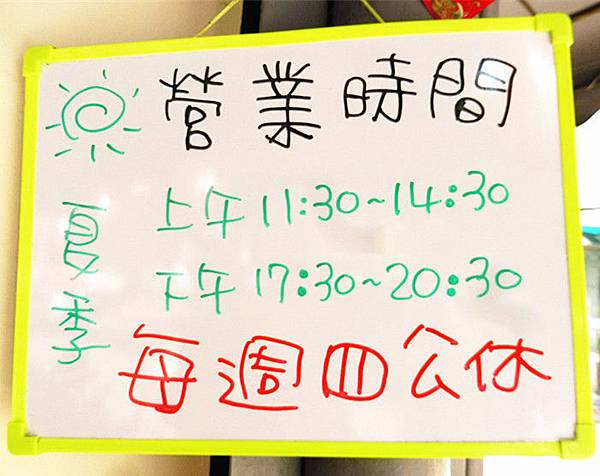 營業時間
夏季
上午11:30~14:30
下午17:30~20:30
每週四公休